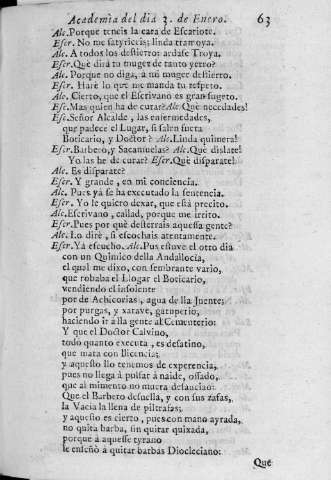 Academia del dia 3. de Enero. 63
Alc. Porque teneis la cara de Escariote.
Escr. No me satyriceis; linda tramoya.
Alc. A todos los destierro: ardase Troya.
Escr. Què dirà tu muger de tanto yerro?
Alc. Porque no diga, à mi muger destierro.
Escr. Harè lo que me manda tu respeto.
Alc. Cierto, que el Escrivano es gran sugeto.
Esc. Mas quien ha de curar? Alc. Què necedades!
Esc. Señor Alcalde, las enfermedades,
que padece el Lugar, si salen fuera
Boticario, y Doctor? Alc. Linda quimera!
Escr. Barbero, y Sacamuelas? Alc. Què dislate!
Yo las he de curar? Escr. Què disparate!
Alc. Es disparate?
Escr. Y grande, en mi conciencia.
Alc. Pues yà se ha executado la sentencia.
Escr. Yo le quiero dexar, que està precito.
Alc. Escrivano, callad, porque me irrito.
Escr. Pues por què desterrais aquessa gente?
Alc. Lo dirè, si escochais atentamente.
Escr. Yà escucho. Alc. Pus estuve el otro dia
con un Quimico della Andallocia,
el qual me dixo, con sembrante vario,
que robaba el Llogar el Boticario,
vendiendo el insolente
por de Achicorias, agua de lla Juente;
por purgas, y xarave, gatuperio,
haciendo ir à lla gente al Cementerio:
Y que el Doctor Calvino,
todo quanto executa, es desatino,
que mata con llicencia;
y aquesto llo tenemos de experencia,
pues no llega à pulsar à naide, ossado,
que al mimento no muera desauciao:
Que el Barbero desuella, y con sus zafas,
la Vacia llena de piltrafas;
y aquesto es cierto, pues con mano ayrada,
no quita barba, sin quitar quixada,
porque à aquesse tyrano
le enseñò à quitar barbas Diocleciano:
Que